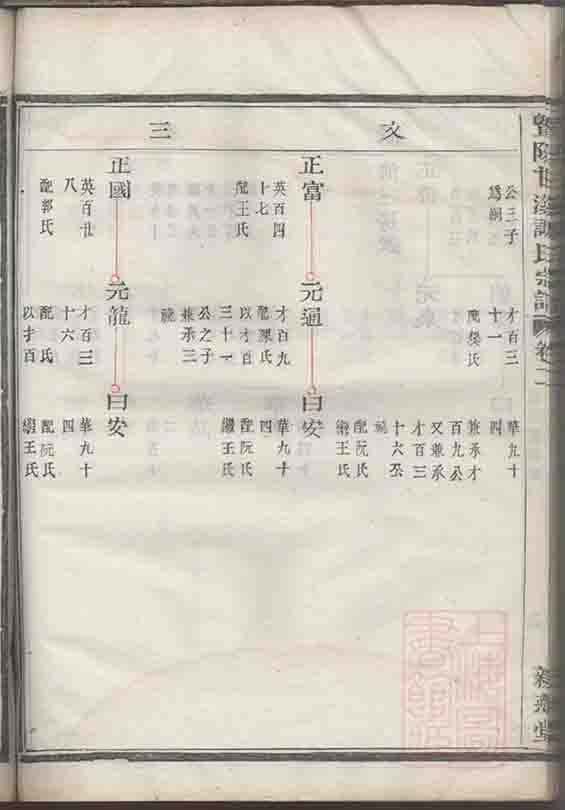 暨陽甘溪謝氏宗譜 卷二
文
三
公三子
爲嗣
才百三
十一
配樊氏
華九十
四
兼承才
百九公
又兼承
才百三
十六公
祧
配阮氏
繼王氏
正富
英百四
十七
配王氏
元通
才百九
配陳氏
以才百
三十一
公之子
兼承三
祧
曰安
華九十
四
配阮氏
繼王氏
正國
英百廿
八
配郭氏
元龍
才百三
十六
配 氏
以才百
曰安
華九十
四
配阮氏
繼王氏
上海圖
書館藏